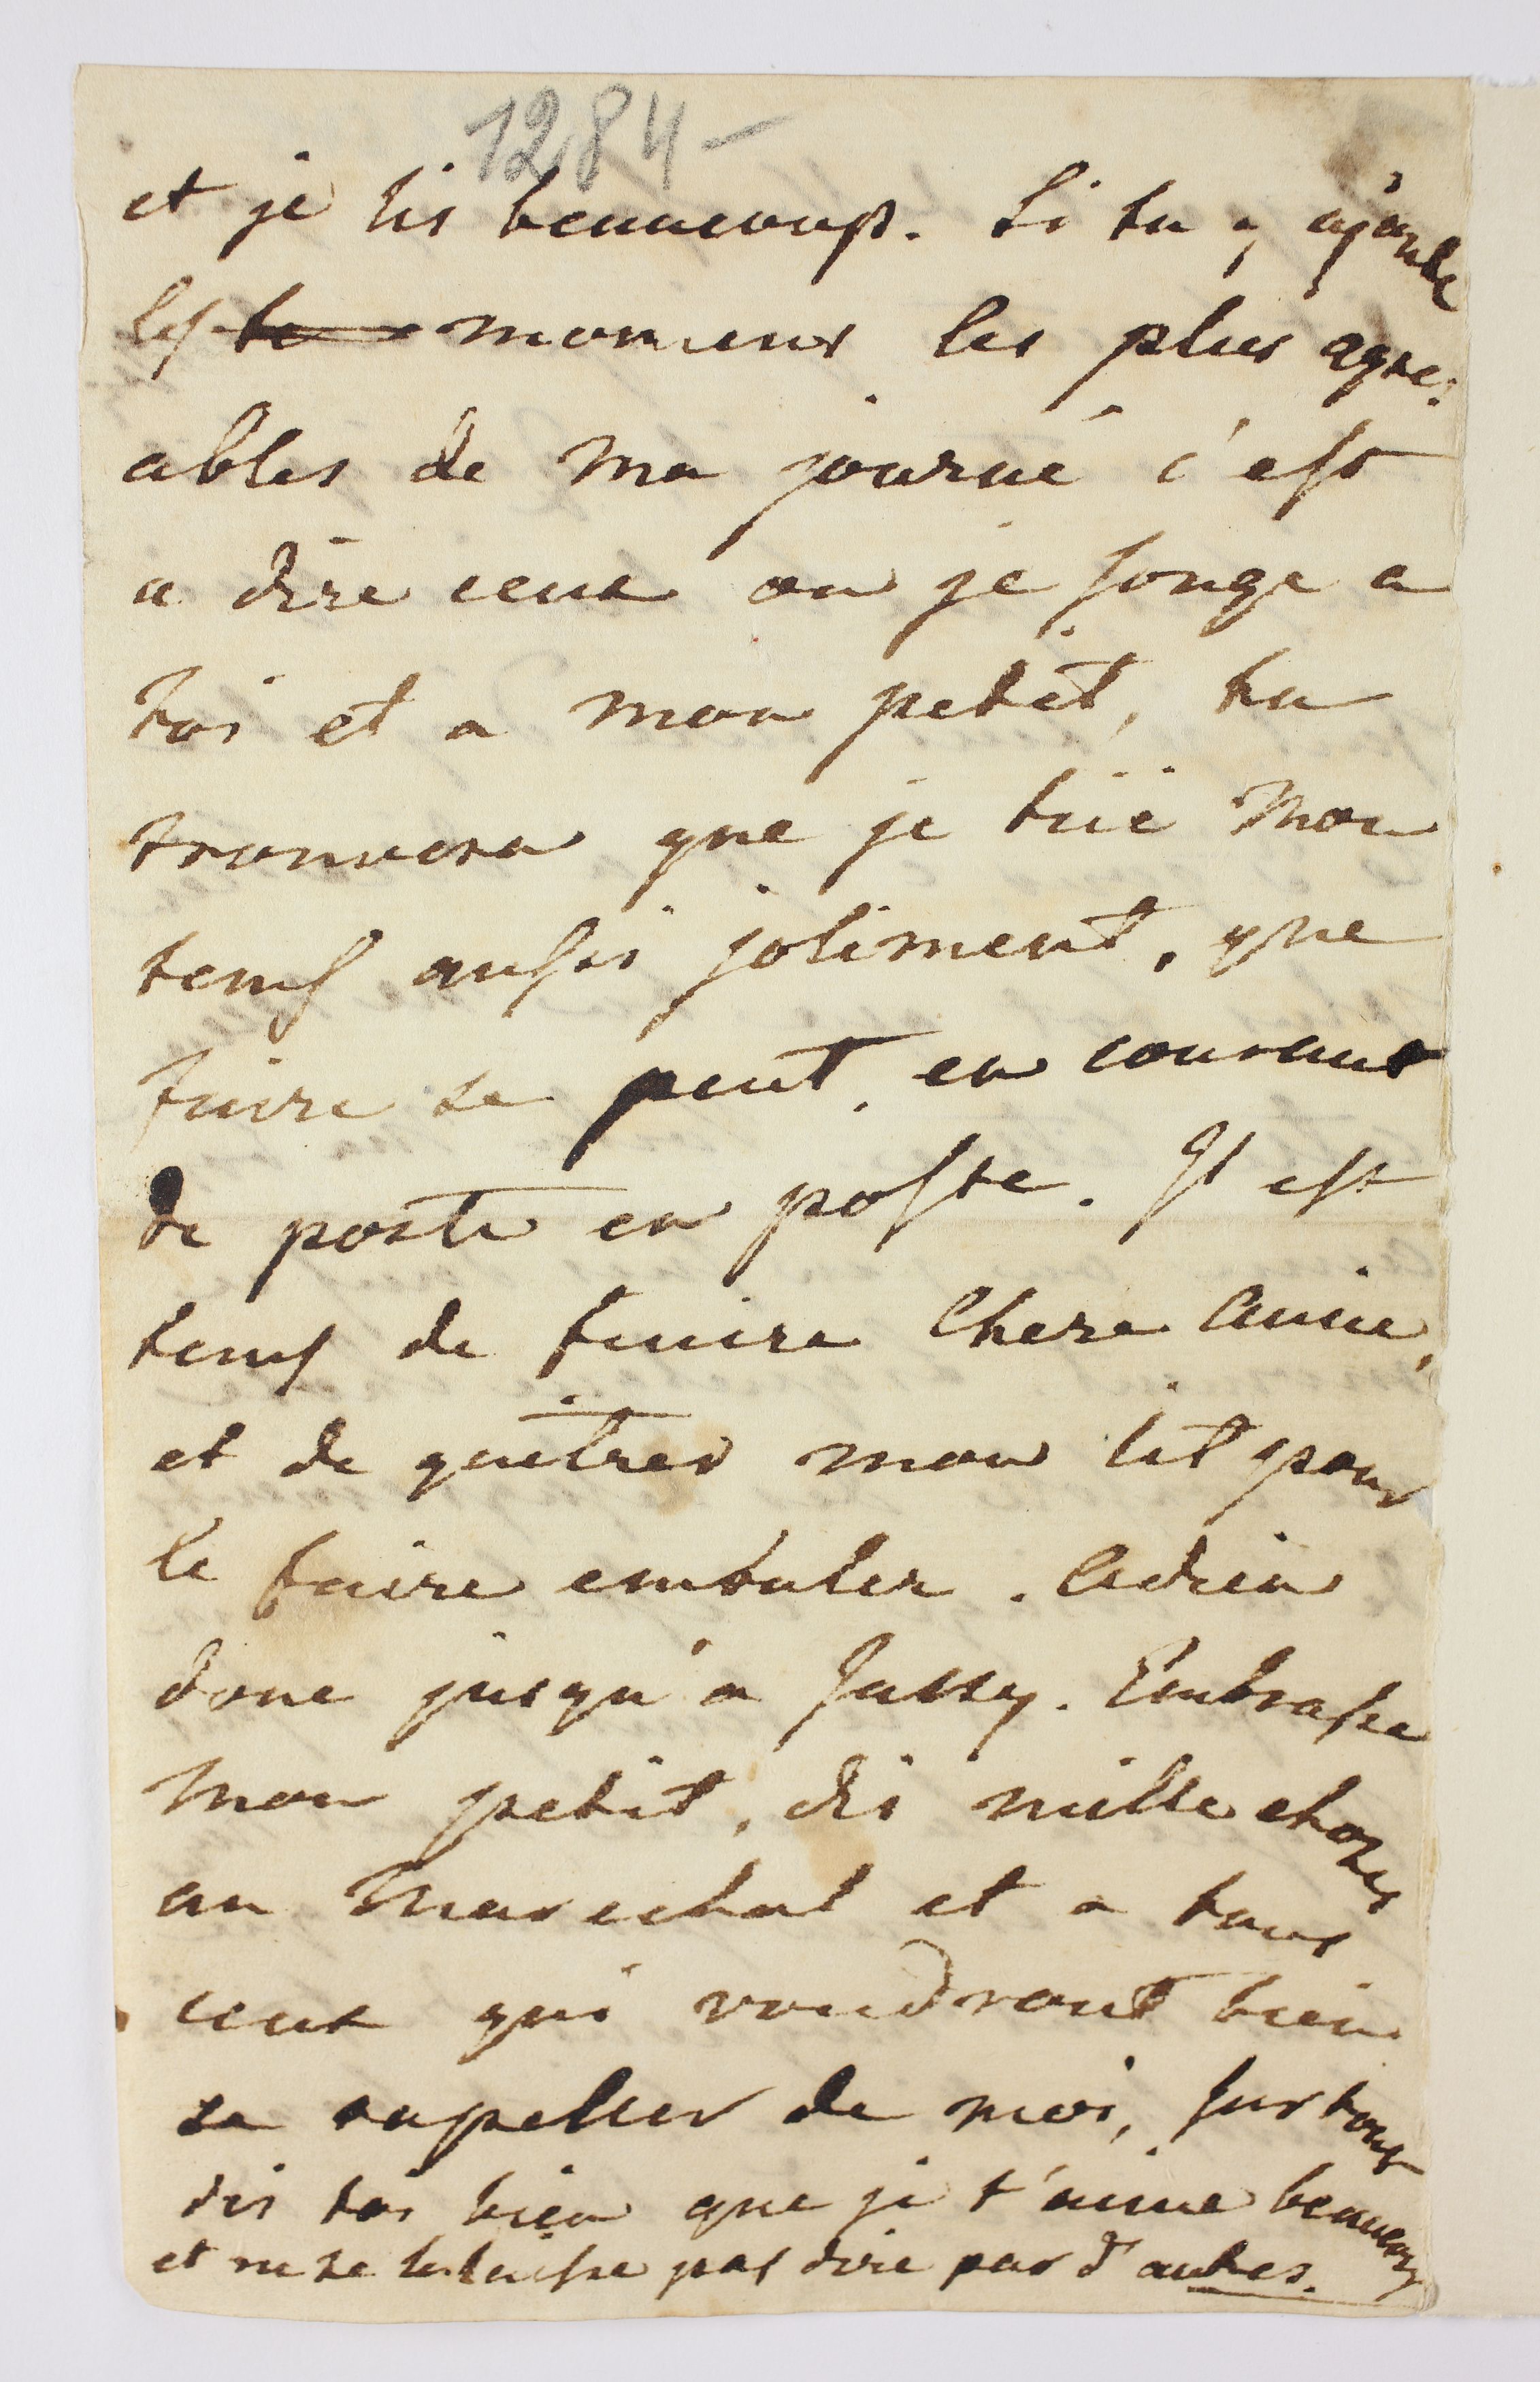 1284-
et je lis beaucoup. Si tu y ajoute
les momens les plus agre-
ables de ma journé c'est
a dire ceux ou je songe a
toi et a mon petit, tu
trouvera que je tüe mon
tems aussi joliment, que
faire se peut en courant
de poste en poste. Il est
tems de finire Chere Amie,
et de quitter mon lit pour
le faire embaler. Adieu
donc jusqu'a Jassy. Embrasse
mon petit, dis mille choses
au Marechal et a tous
ceux qui voudront bien
se rapeller de moi, surtout
dis toi bien que je t'aime beaucoup
et ne te le laisse pas dire par d'autres.